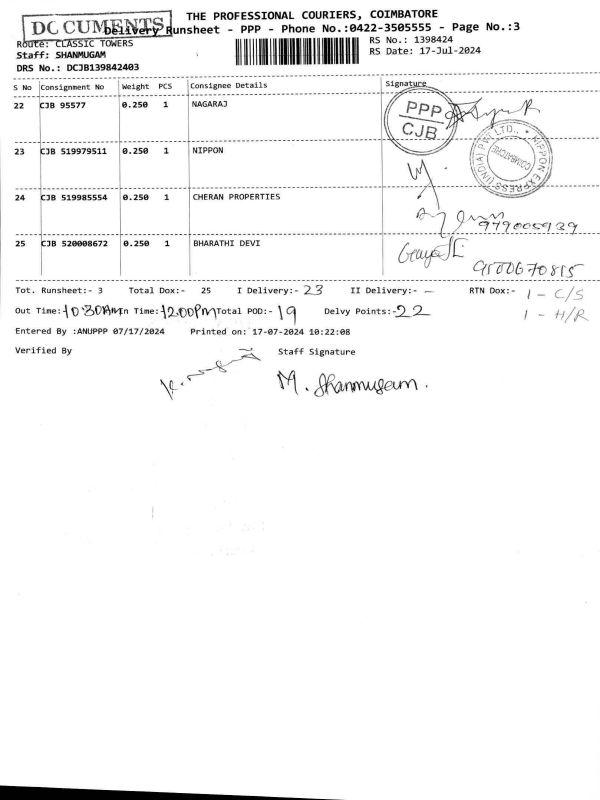 DOCUMENTS
THE PROFESSIONAL COURIERS, COIMBATORE
Delivery Runsheet - PPP - Phone No.:0422-3505555 - Page No.:3
Route: CLASSIC TOWERS
RS No.: 1398424
Staff: SHANMUGAM
RS Date: 17-Jul-2024
DRS No.: DCJB139842403
S No Consignment No Weight PCS Consignee Details Signature
22 CJB 95577 0.250 1 NAGARAJ
PPP
CJB
23 CJB 519979511 0.250 1 NIPPON
NIPPON EXPRESS (INDIA) PVT LTD.,
COIMBATORE
24 CJB 519985554 0.250 1 CHERAN PROPERTIES
979005939
25 CJB 520008672 0.250 1 BHARATHI DEVI
9500670815
Tot. Runsheet:- 3 Total Dox:- 25 I Delivery:- 23 II Delivery:- — RTN Dox:- 1 - C/S
1 - H/R
Out Time:- 10:30AM In Time:- 12.00PM Total POD:- 19 Delvy Points:- 22
Entered By :ANUPPP 07/17/2024 Printed on: 17-07-2024 10:22:08
Verified By Staff Signature
M. Shanmugam.